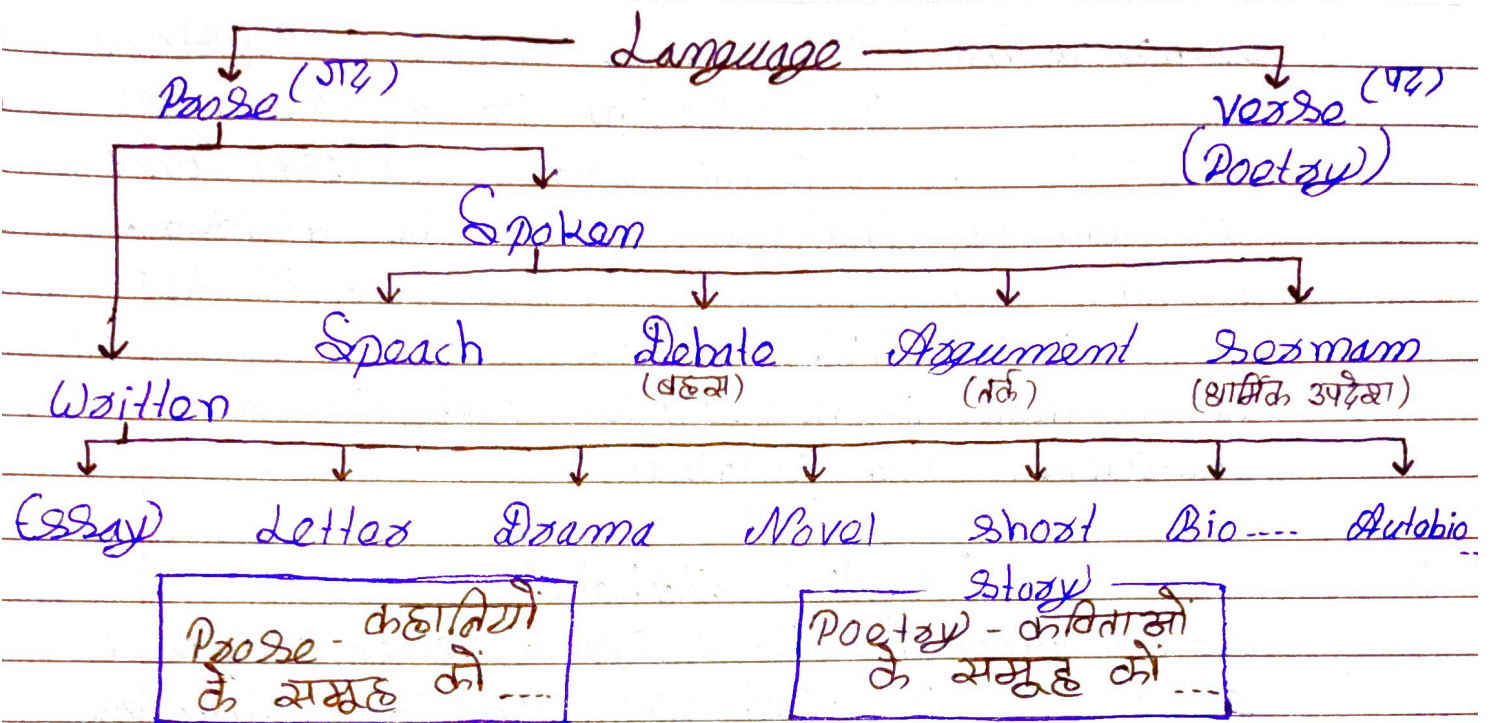 Language
Prose (गद)
Verse (पद)
(Poetry)
Spoken
Speach Debate Argument Sermam
(बहस) (तर्क) (धार्मिक उपदेश)
Written
Essay Letter Drama Novel Short Bio.... Autobio..
Story
Prose - कहानियों
के समूह को ....
Poetry - कविताओं
के समूह को ...